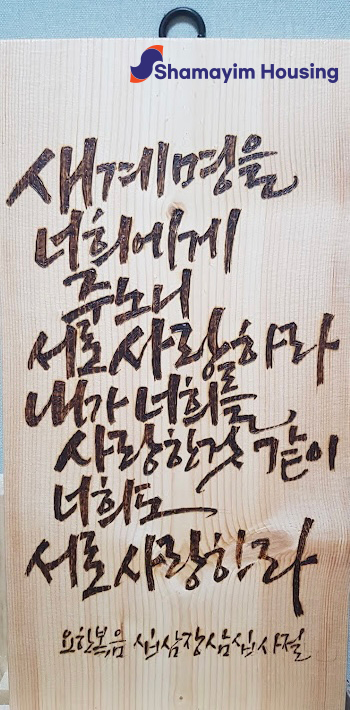 Shamayim Housing
새계명을
너희에게
주노니
서로 사랑하라
내가 너희를
사랑한것 같이
너희도
서로 사랑하라
요한복음 십삼장삼십사절